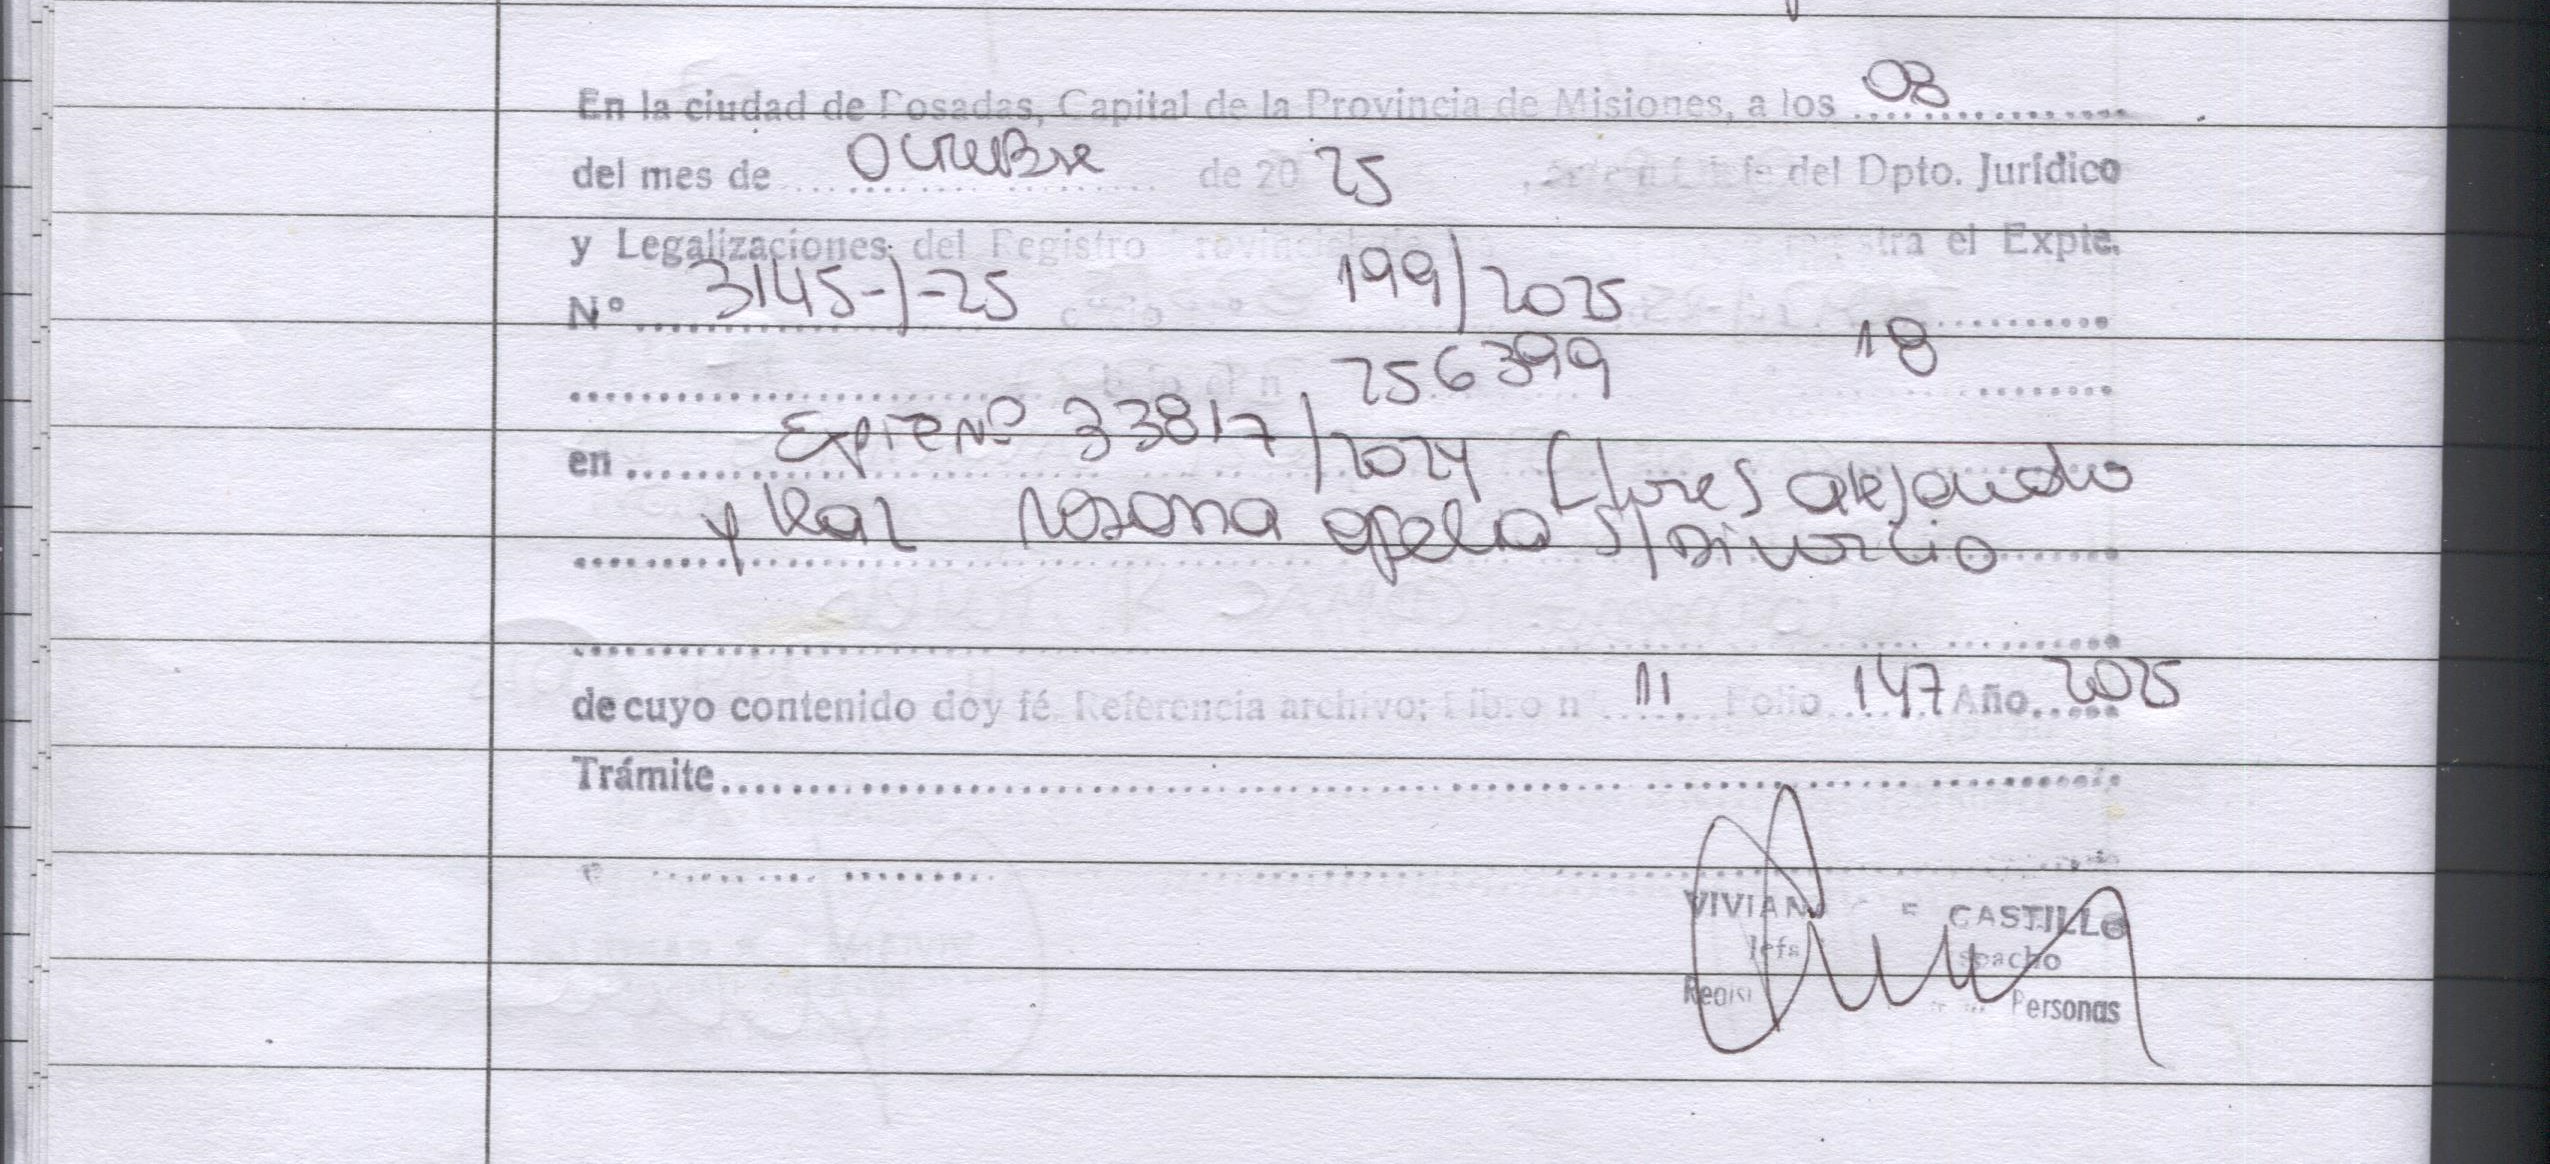 En la ciudad de Posadas, Capital de la Provincia de Misiones, a los 08
del mes de Octubre de 20 25 del Dpto. Jurídico
y Legalizaciones del Registro Provincial registra el Expte.
Nº 3145-J-25 199/2025
256399 18
en Expte Nº 33817/2024 Flores Alejandro
y Rosana Ofelia S/ Divorcio
de cuyo contenido doy fé. Referencia archivo: Libro n 11 Folio 147 Año 2025
Trámite
CASTILLO
Jefa
Personas